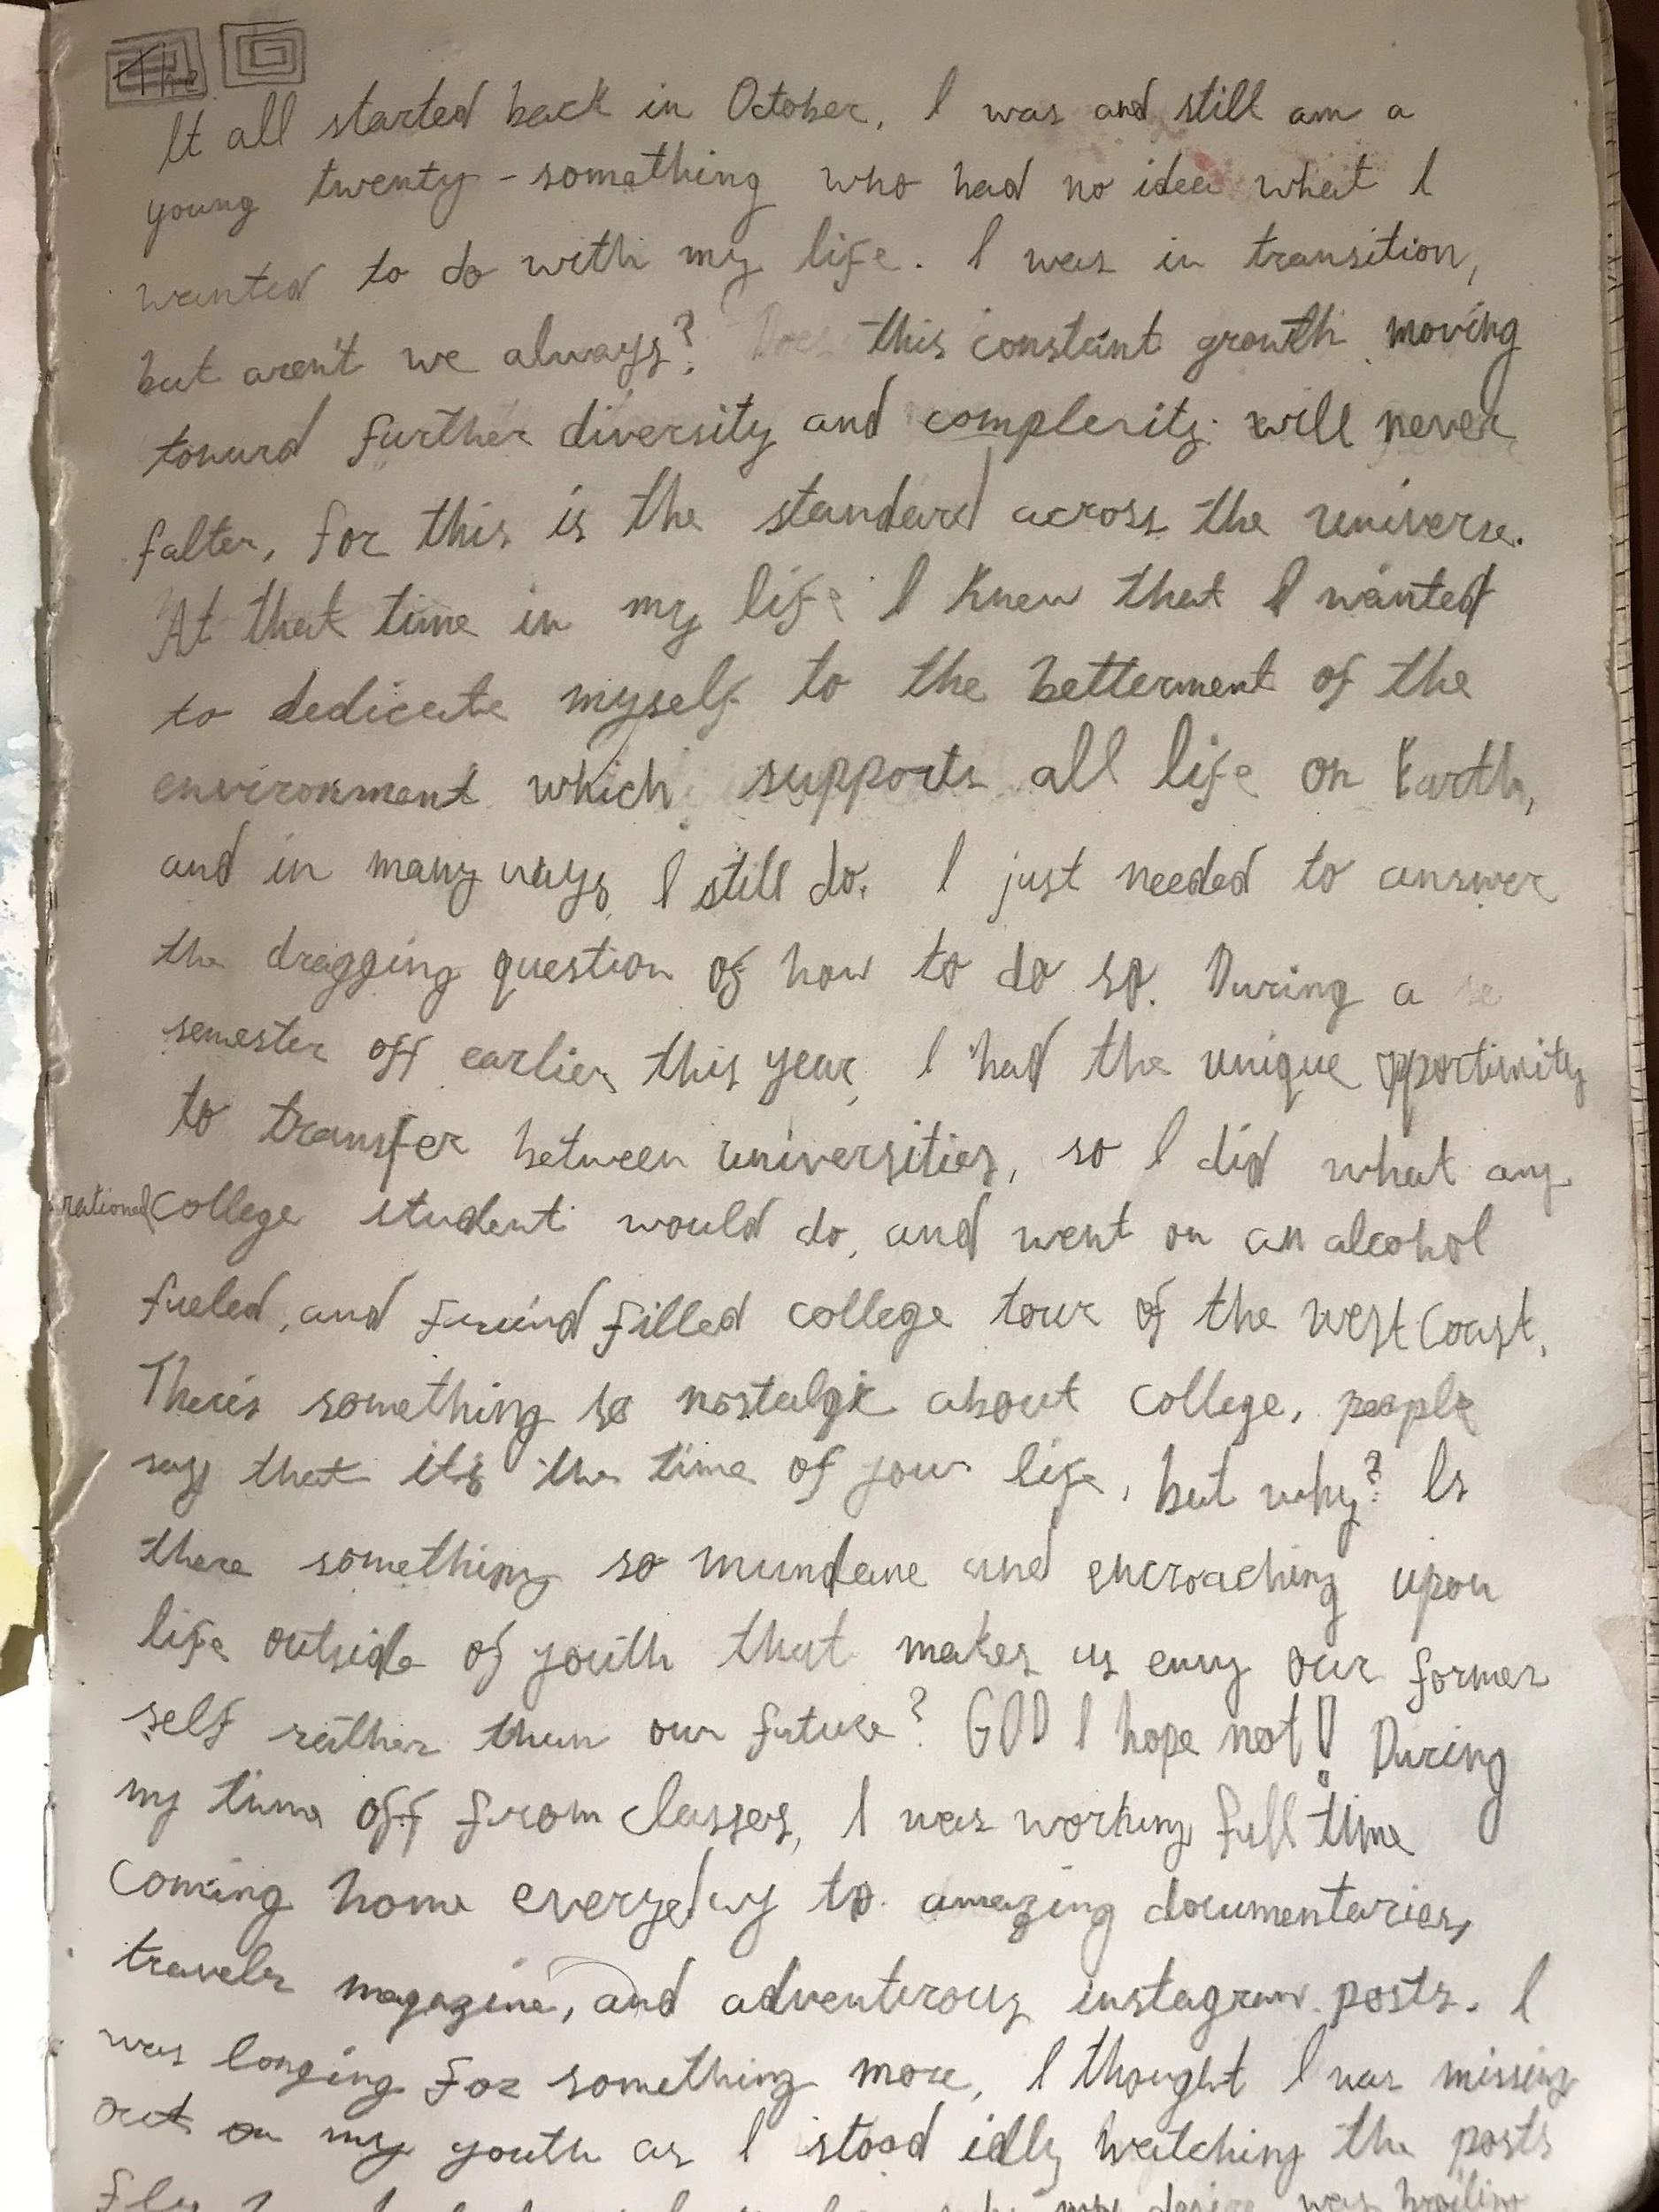 The
It all started back in October, I was and still am a
young twenty-something who had no idea what I
wanted to do with my life. I was in transition,
but aren't we always? Does this constant growth moving
toward further diversity and complexity will never
falter, for this is the standard across the universe.
At that time in my life I knew that I wanted
to dedicate myself to the betterment of the
environment which supports all life on Earth,
and in many ways I still do. I just needed to answer
the dragging question of how to do so. During a se
semester off earlier this year, I had the unique opportinity
to transfer between universities, so I did what any
rational college student would do, and went on an alcohol
fueled, and filled college tour of the west Coast.
There's something so nostalgic about college, people
say that it's the time of your life, but why? Is
there something so mundane and encroaching upon
life outside of youth that makes us envy our former
self rather than our future? GOD I hope not! During
my time off from classes, I was working full time
coming home everyday to amazing documentaries,
travelr magazine, and adventurous instagram posts. I
was longing for something more, I thought I was missing
out on my youth as I stood idly watching the posts
my desire was boiling